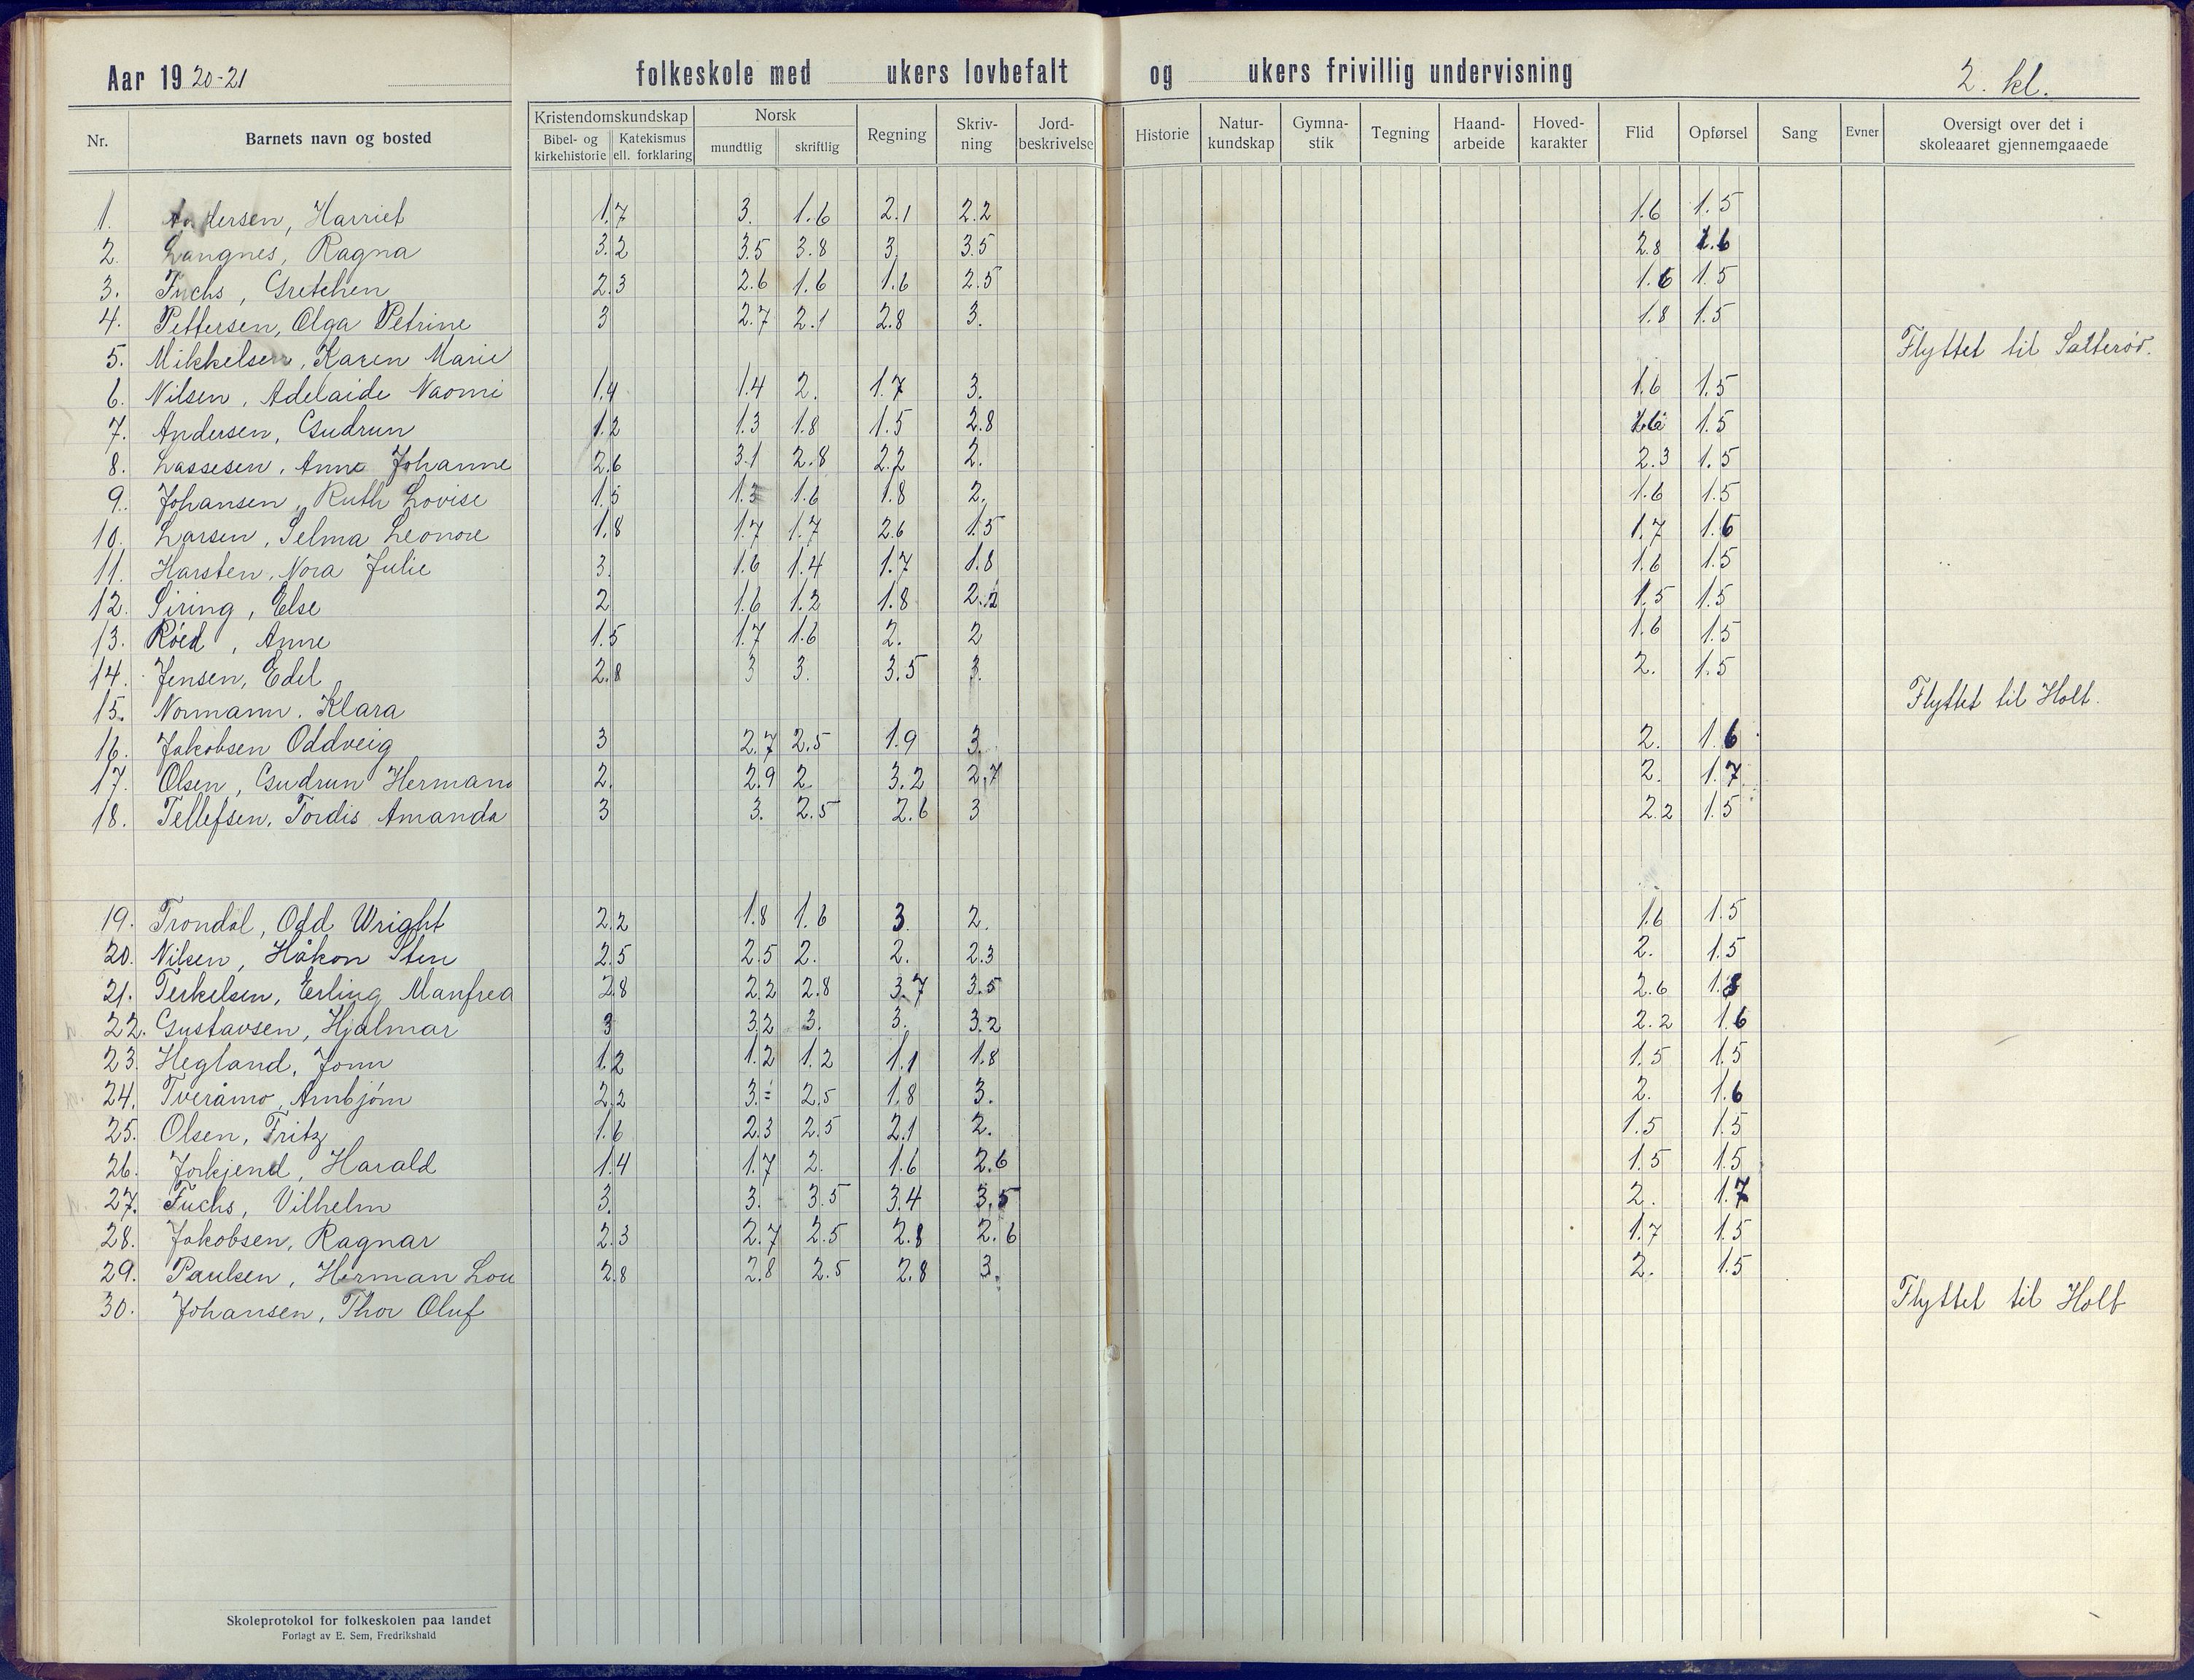 Aar 1920-21 folkeskole med ukers lovbefalt og ukers frivillig undervisning 2. kl.
Nr. Barnets navn og bosted Kristendomskundskap Bibel- og kirkehistorie Katekismus ell. forklaring Norsk mundtlig skriftlig Regning Skriv-ning Jord-beskrivelse Historie Natur-kundskap Gymna-stik Tegning Haand-arbeide Hoved-karakter Flid Opførsel Sang Evner Oversigt over det i skoleaaret gjennemgaaede
1. Andersen, Harriet 1.7 3. 1.6 2.1 2.2 1.6 1.5
2. Langnes, Ragna 3.2 3.5 3.8 3. 3.5 2.8 1.6
3. Fuchs, Gretchen 2.3 2.6 1.6 1.6 2.5 1.6 1.5
4. Pettersen, Olga Petrine 3 2.7 2.1 2.8 3. 1.8 1.5
5. Mikkelsen, Karen Marie Flyttet til Salterød.
6. Nilsen, Adelaide Naomi 1.4 1.4 2. 1.7 3. 1.6 1.5
7. Andersen, Gudrun 1.2 1.3 1.8 1.5 2.8 1.6 1.5
8. Lassesen, Anne Johanne 2.6 3.1 2.8 2.2 2. 2.3 1.5
9. Johansen, Ruth Lovise 1.5 1.3 1.6 1.8 2. 1.6 1.5
10. Larsen, Selma Leonore 1.8 1.7 1.7 2.6 1.5 1.7 1.6
11. Harsten, Nora Julie 3. 1.6 1.4 1.7 1.8 1.6 1.5
12. Siring, Else 2 1.6 1.2 1.8 2.2 1.5 1.5
13. Röed, Anne 1.5 1.7 1.6 2. 2 1.6 1.5
14. Jensen, Edel 2.8 3 3. 3.5 3. 2. 1.5
15. Normann, Klara Flyttet til Holt.
16. Jakobsen Oddveig 3 2.7 2.5 1.9 3. 2. 1.6
17. Olsen, Gudrun Herman 2. 2.9 2. 3.2 2.7 2. 1.7
18. Tellefsen, Tordis Amanda 3 3. 2.5 2.6 3 2.2 1.5
19. Trondal, Odd Wright 2.2 1.8 1.6 3. 2. 1.6 1.5
20. Nilsen, Håkon Sten 2.5 2.5 2. 2. 2.3 2. 1.5
21. Terkelsen, Erling Manfred 2.8 2.2 2.8 3.7 3.5 2.6 1.8
22. Gustavsen, Hjalmar 3 3.2 3. 3. 3.2 2.2 1.6
23. Hegland, Jonn 1.2 1.2 1.2 1.1 1.8 1.5 1.5
24. Tveråmo, Arnbjörn 2.2 3.÷ 2.5 1.8 3. 2. 1.6
25. Olsen, Fritz 1.6 2.3 2.5 2.1 2. 1.5 1.5
26. Jorkjend, Harald 1.4 1.7 2. 1.6 2.6 1.5 1.5
27. Fuchs, Vilhelm 3. 3. 3.5 3.4 3.5 2. 1.7
28. Jakobsen, Ragnar 2.3 2.7 2.5 2.8 2.6 1.7 1.5
29. Paulsen, Herman Lou 2.8 2.8 2.5 2.8 3. 2. 1.5
30. Johansen, Thor Oluf Flyttet til Holt
Skoleprotokol for folkeskolen paa landet
Forlagt av E. Sem, Fredrikshald